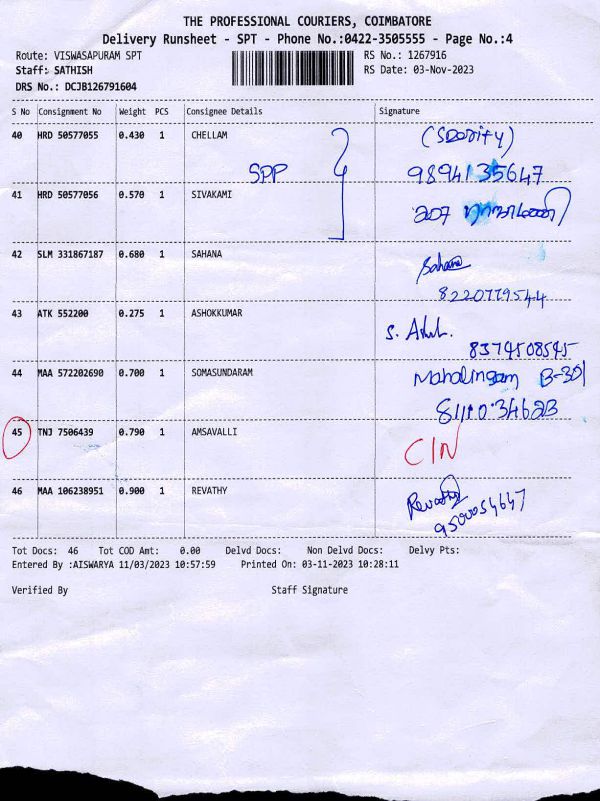 THE PROFESSIONAL COURIERS, COIMBATORE
Delivery Runsheet - SPT - Phone No.:0422-3505555 - Page No.:4
Route: VISWASAPURAM SPT RS No.: 1267916
Staff: SATHISH RS Date: 03-Nov-2023
DRS No.: DCJB126791604
S No Consignment No Weight PCS Consignee Details Signature
40 HRD 50577055 0.430 1 CHELLAM
SPP 9894135647
41 HRD 50577056 0.570 1 SIVAKAMI
42 SLM 331867187 0.680 1 SAHANA Sahana
8220779544
43 ATK 552200 0.275 1 ASHOKKUMAR S. Ashok.
8374508545
44 MAA 572202690 0.700 1 SOMASUNDARAM Mahalingam B-301
8110034623
45 TNJ 7506439 0.790 1 AMSAVALLI C/N
46 MAA 106238951 0.900 1 REVATHY Revathy
9500054647
Tot Docs: 46 Tot COD Amt: 0.00 Delvd Docs: Non Delvd Docs: Delvy Pts:
Entered By :AISWARYA 11/03/2023 10:57:59 Printed On: 03-11-2023 10:28:11
Verified By Staff Signature